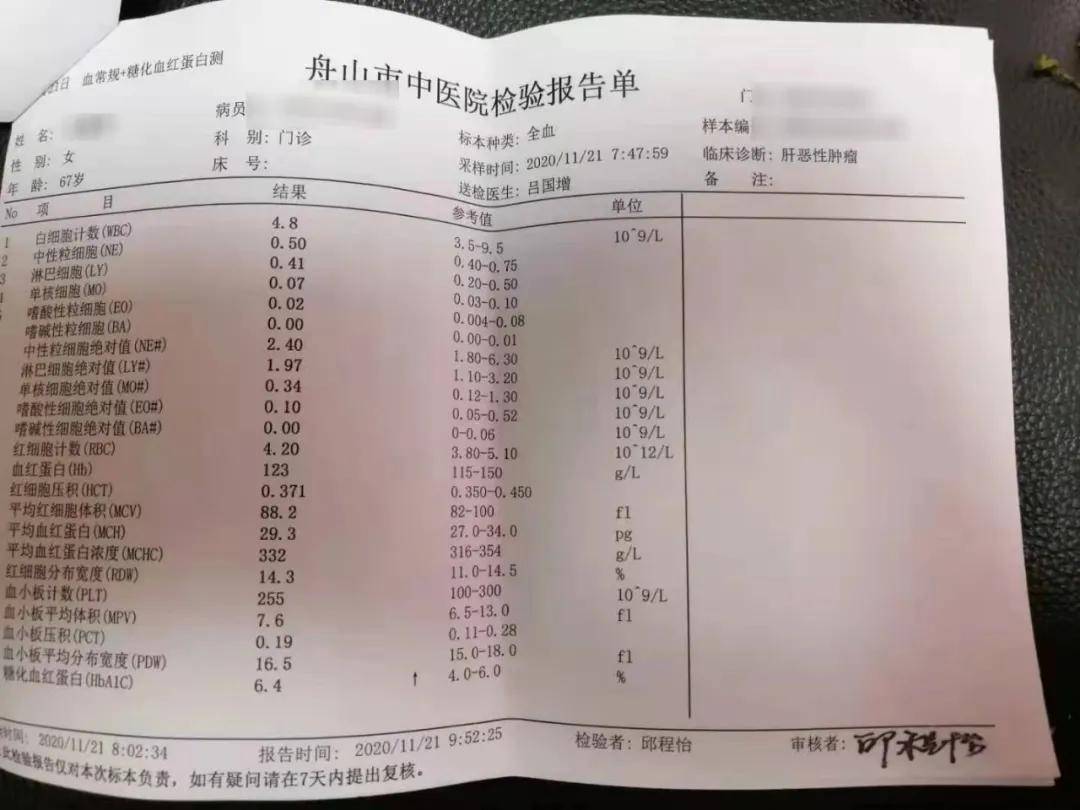 21日 血常规+糖化血红蛋白测
舟山市中医院检验报告单
姓 名: 病员 门
性 别: 女 科 别: 门诊 标本种类: 全血 样本编
年 龄: 67岁 床 号: 采样时间: 2020/11/21 7:47:59 临床诊断: 肝恶性肿瘤
送检医生: 吕国增 备 注:
No 项 目 结果 参考值 单位
1 白细胞计数(WBC) 4.8 3.5-9.5 10^9/L
2 中性粒细胞(NE) 0.50 0.40-0.75
3 淋巴细胞(LY) 0.41 0.20-0.50
单核细胞(MO) 0.07 0.03-0.10
嗜酸性粒细胞(EO) 0.02 0.004-0.08
嗜碱性粒细胞(BA) 0.00 0.00-0.01
中性粒细胞绝对值(NE#) 2.40 1.80-6.30 10^9/L
淋巴细胞绝对值(LY#) 1.97 1.10-3.20 10^9/L
单核细胞绝对值(MO#) 0.34 0.12-1.30 10^9/L
嗜酸性细胞绝对值(EO#) 0.10 0.05-0.52 10^9/L
嗜碱性细胞绝对值(BA#) 0.00 0-0.06 10^9/L
红细胞计数(RBC) 4.20 3.80-5.10 10^12/L
血红蛋白(Hb) 123 115-150 g/L
红细胞压积(HCT) 0.371 0.350-0.450
平均红细胞体积(MCV) 88.2 82-100 fl
平均血红蛋白(MCH) 29.3 27.0-34.0 pg
平均血红蛋白浓度(MCHC) 332 316-354 g/L
红细胞分布宽度(RDW) 14.3 11.0-14.5 %
血小板计数(PLT) 255 100-300 10^9/L
血小板平均体积(MPV) 7.6 6.5-13.0 fl
血小板压积(PCT) 0.19 0.11-0.28
血小板平均分布宽度(PDW) 16.5 15.0-18.0 fl
糖化血红蛋白(HbA1C) 6.4 ↑ 4.0-6.0 %
时间: 2020/11/21 8:02:34 报告时间: 2020/11/21 9:52:25 检验者: 邱程怡 审核者:
此检验报告仅对本次标本负责，如有疑问请在7天内提出复核。